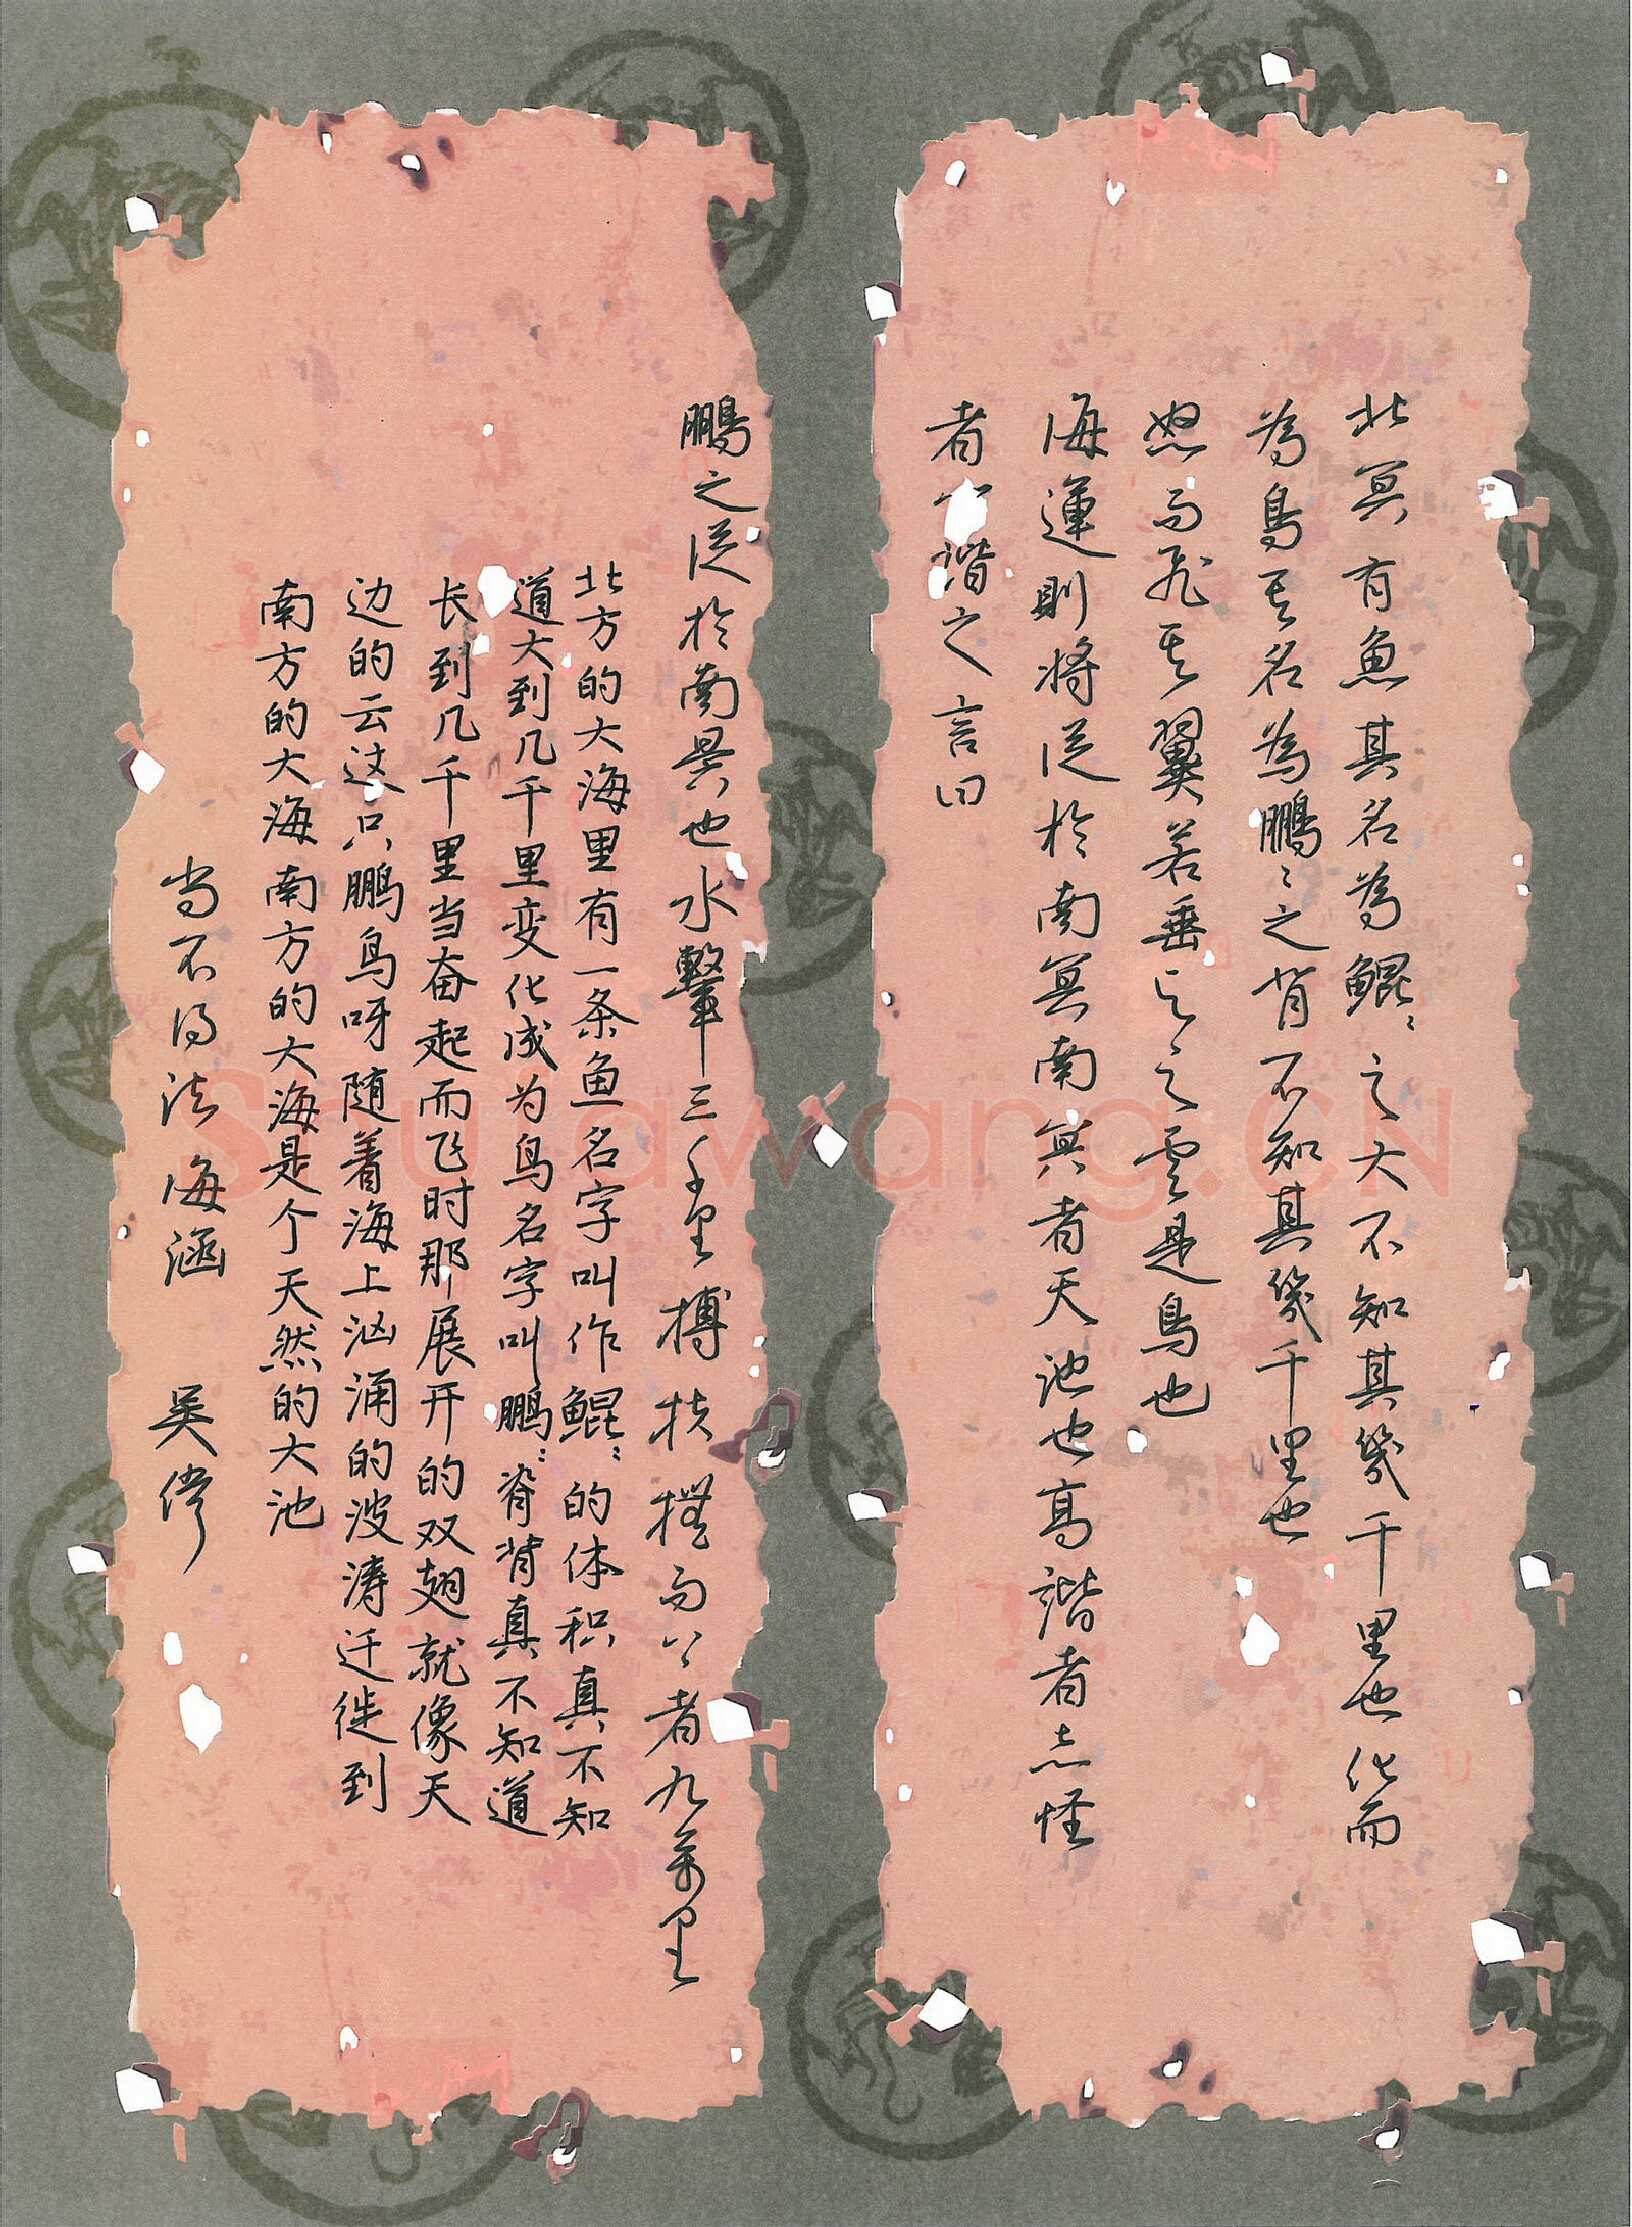 北冥有魚其名為鯤〻之大不知其幾千里也化而
為鳥其名為鵬〻之背不知其幾千里也
怒而飛其翼若垂之雲是鳥也
海運則將徙於南冥南冥者天池也高諧者志怪
者諧之言曰
鵬之徙於南冥也水擊三千里搏扶摇而上者九萬里
北方的大海里有一条鱼名字叫作鲲〻的体积真不知
道大到几千里变化成为鸟名字叫鹏〻脊背真不知道
长到几千里当奋起而飞时那展开的双翅就像天
边的云这只鹏鸟呀随着海上汹涌的波涛迁徙到
南方的大海南方的大海是个天然的大池
书不得法 海涵 吴偉
Shufawang.CN